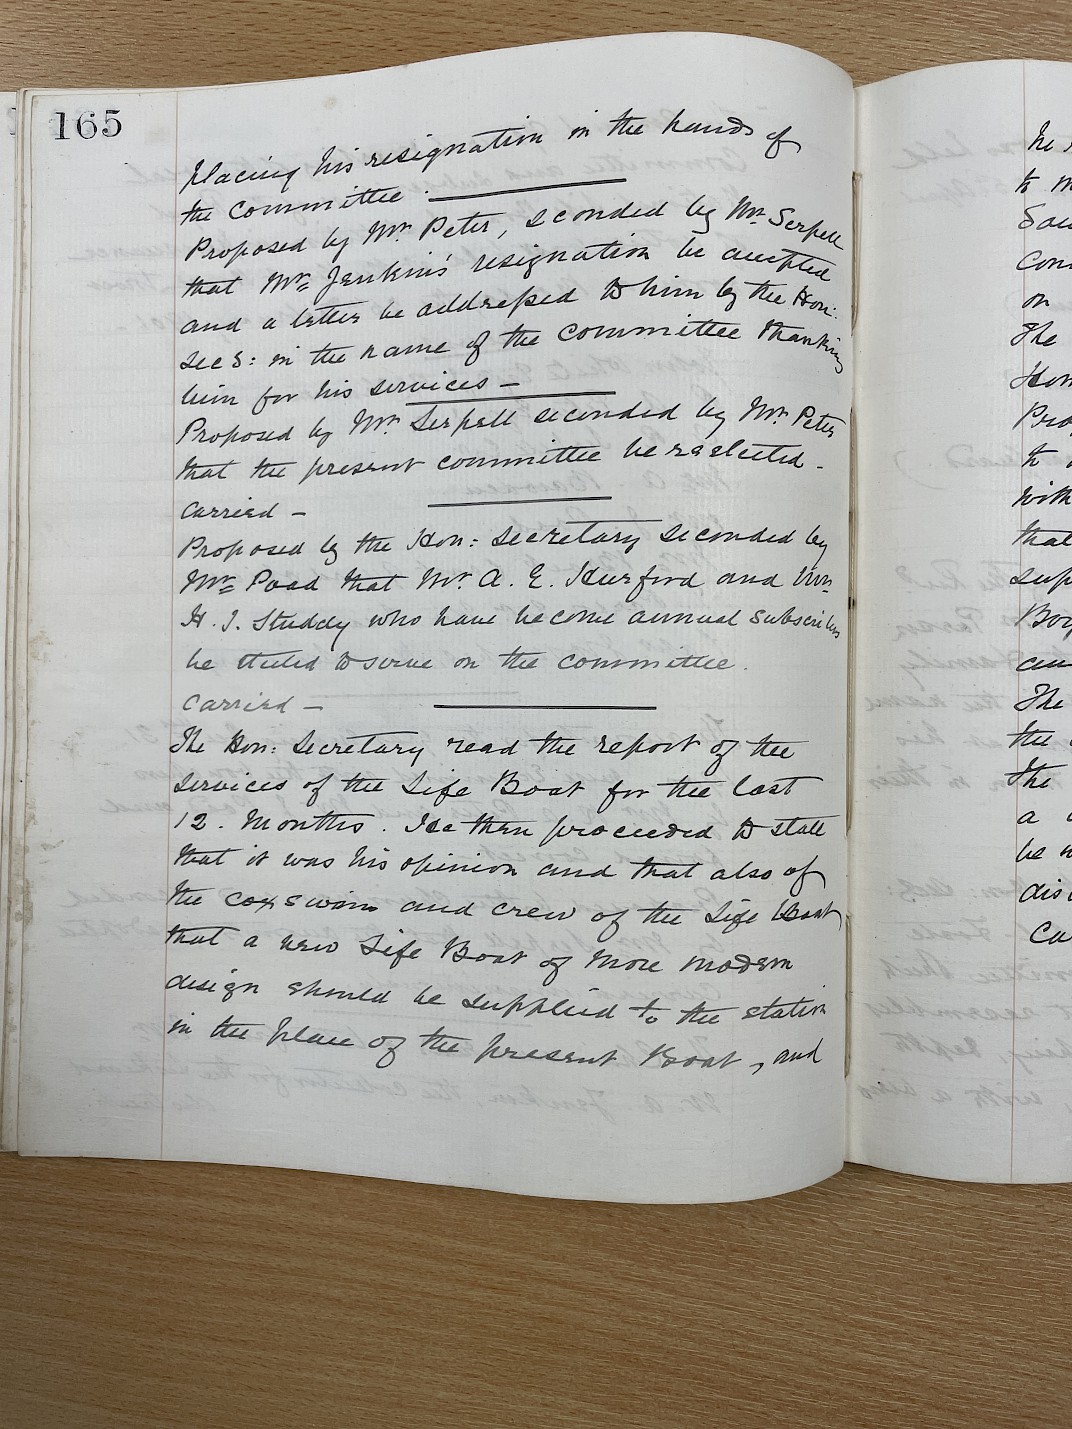 165
placing his resignation in the hands of
the committee.
Proposed by Mr. Peter, seconded by Mr. Serpell
that Mr. Jenkin's resignation be accepted
and a letter be addressed to him by the Hon:
secs: in the name of the committee thanking
him for his services —
Proposed by Mr. Serpell seconded by Mr. Peter
that the present committee be reelected -
carried —
Proposed by the Hon: Secretary seconded by
Mr. Poad that Mr. A. E. Hurford and Mr.
H. J. Studdy who have become annual subscribers
be elected to serve on the committee.
carried —
The Hon: Secretary read the report of the
services of the Life Boat for the last
12. Months. He then proceeded to state
that it was his opinion and that also of
the coxswain and crew of the Life Boat
that a new Life Boat of more modern
design should be supplied to the station
in the place of the present Boat, and
to
on
The
Hon
to
with
that
Boy
The
the
The
a
be